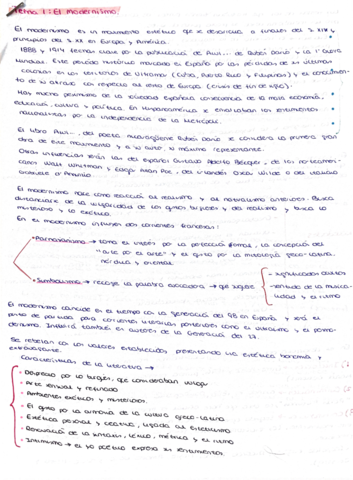 Tema 1: El Modernismo.
El modernismo es un movimiento estético que se desarrolla a finales del S.XIX y
principios del S.XX en Europa y América.
1888 y 1914 fechas clave por la publicación de Azul... de Rubén Darío y la 1ª Guerra
Mundial. Este periodo histórico marcado en España por las pérdidas de sus últimas
colonias en los territorios de Ultramar (Cuba, Puerto Rico y Filipinas) y el
de su atraso con respecto al resto de Europa (crisis de fin de siglo).
Hay mucho pesimismo de la sociedad española consecuencia de la mala economía,
educación, cultura y política. En Hispanoamérica se exaltaban los sentimientos
nacionalistas por la independencia de la metrópoli.
El libro Azul..., del poeta nicaragüense Rubén Darío se considera la primera gran
obra de este movimiento y a su autor, su máximo representante.
Otras influencias serán las del español Gustavo Adolfo Bécquer, de los norteameri-
canos Walt Whitman y Edgar Allan Poe, del irlandés Oscar Wilde o del italiano
El modernismo nace como reacción al realismo y al naturalismo anteriores. Busca
distanciarse de la vulgaridad de los gustos burgueses y del realismo y busca lo
misterioso y lo exótico.
En el modernismo influyen dos corrientes francesas:
• Parnasianismo → toma el interés por la perfección formal, la concepción del
"arte por el arte" y el gusto por la mitología greco-latina,
nórdica y oriental.
• Simbolismo → recoge la palabra evocadora → que sugiere
- significados ocultos
- sentido de la musica-
lidad y el ritmo
El modernismo coincide en el tiempo con la generación del 98 en España y será el
punto de partida para corrientes literarias posteriores como el
Influirá también en autores de la Generación del 27.
Se rebelan con los valores establecidos, presentando una estética bohemia y
extravagante.
Características de la literatura →
• Desprecio por lo burgués, que consideraban vulgar
• Arte sensual y refinado
• Ambientes exóticos y misteriosos.
• El gusto por la armonía de la cultura greco-latina.
• Estética personal y creativa, ligada al esteticismo
• Renovación de la sintaxis, léxico, métrica y el ritmo
• Intimismo → el yo poético expresa sus sentimientos.